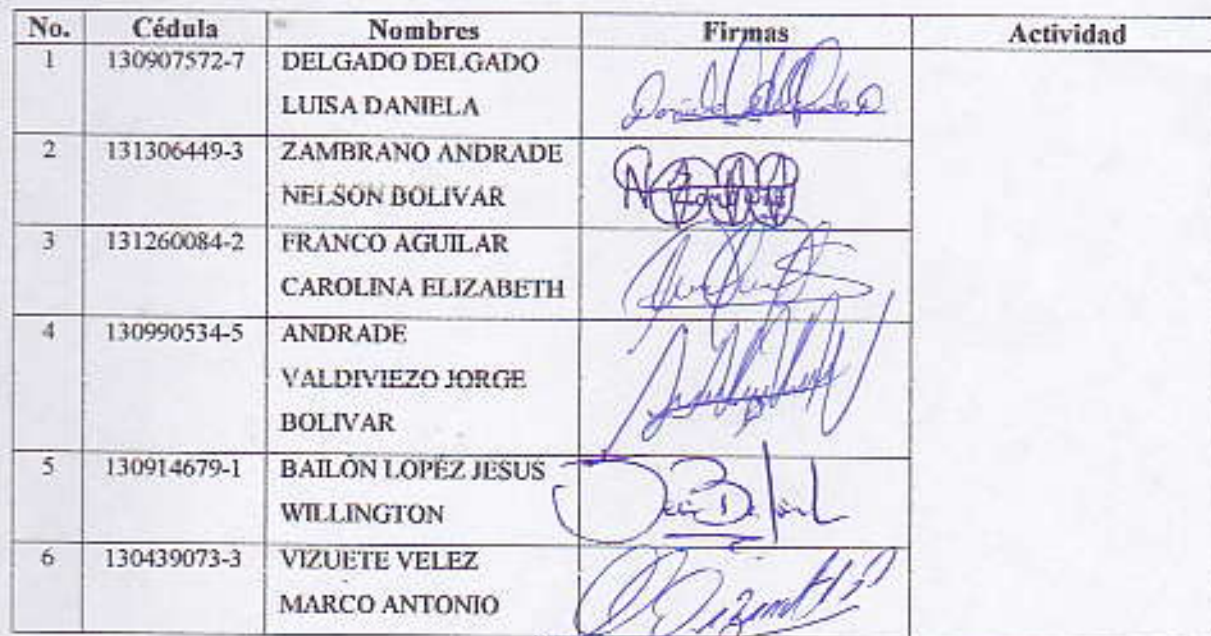 No. Cédula Nombres Firmas Actividad
1 130907572-7 DELGADO DELGADO
LUISA DANIELA
2 131306449-3 ZAMBRANO ANDRADE
NELSON BOLIVAR
3 131260084-2 FRANCO AGUILAR
CAROLINA ELIZABETH
4 130990534-5 ANDRADE
VALDIVIEZO JORGE
BOLIVAR
5 130914679-1 BAILÓN LOPÉZ JESUS
WILLINGTON
6 130439073-3 VIZUETE VELEZ
MARCO ANTONIO